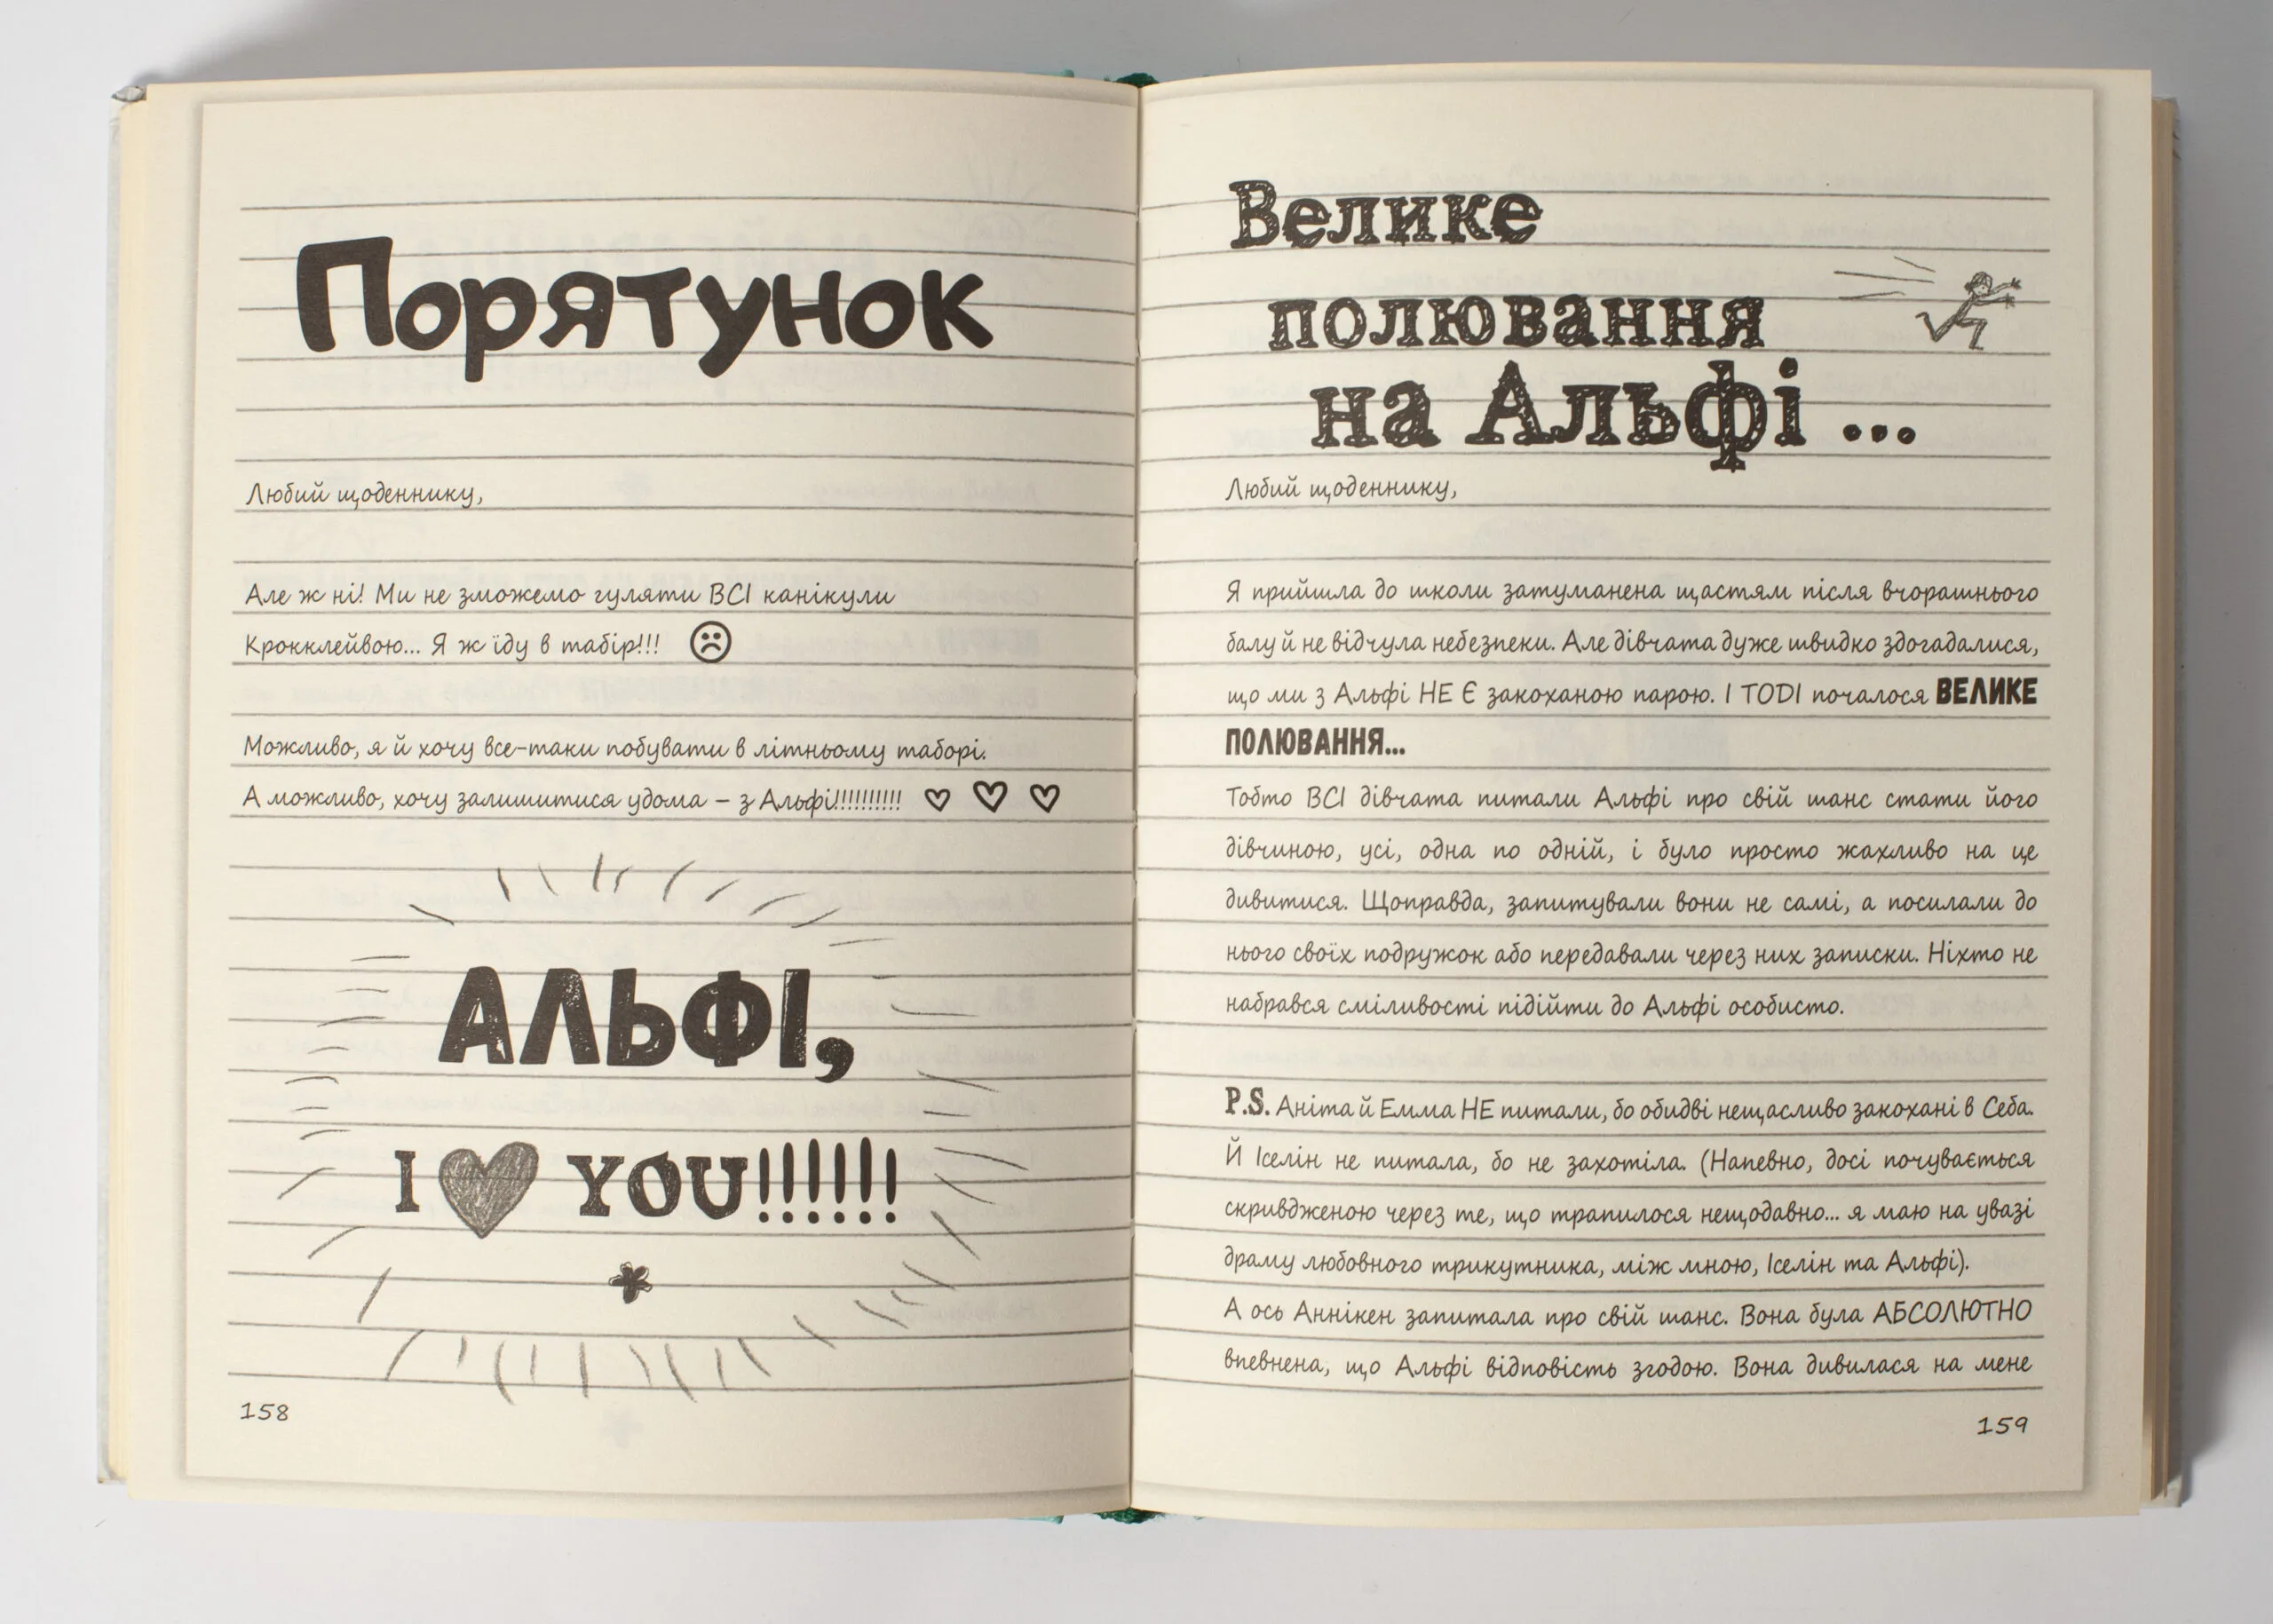 Порятунок
Любий щоденнику,
Але ж ні! Ми не зможемо гуляти ВСІ канікули
Крокклейвою... Я ж їду в табір!!!
Можливо, я й хочу все-таки побувати в літньому таборі.
А можливо, хочу залишитися удома – з Альфі!!!!!!!!!!
АЛЬФІ,
I YOU!!!!!!
158
Велике
полювання
на Альфі ...
Любий щоденнику,
Я прийшла до школи затуманена щастям після вчорашнього
балу й не відчула небезпеки. Але дівчата дуже швидко здогадалися,
що ми з Альфі НЕ Є закоханою парою. І ТОДІ почалося ВЕЛИКЕ
ПОЛЮВАННЯ...
Тобто ВСІ дівчата питали Альфі про свій шанс стати його
дівчиною, усі, одна по одній, і було просто жахливо на це
дивитися. Щоправда, запитували вони не самі, а посилали до
нього своїх подружок або передавали через них записки. Ніхто не
набрався сміливості підійти до Альфі особисто.
P.S. Аніта й Емма НЕ питали, бо обидві нещасливо закохані в Себа.
Й Іселін не питала, бо не захотіла. (Напевно, досі почувається
скривдженою через те, що трапилося нещодавно... я маю на увазі
драму любовного трикутника, між мною, Іселін та Альфі).
А ось Аннікен запитала про свій шанс. Вона була АБСОЛЮТНО
впевнена, що Альфі відповість згодою. Вона дивилася на мене
159